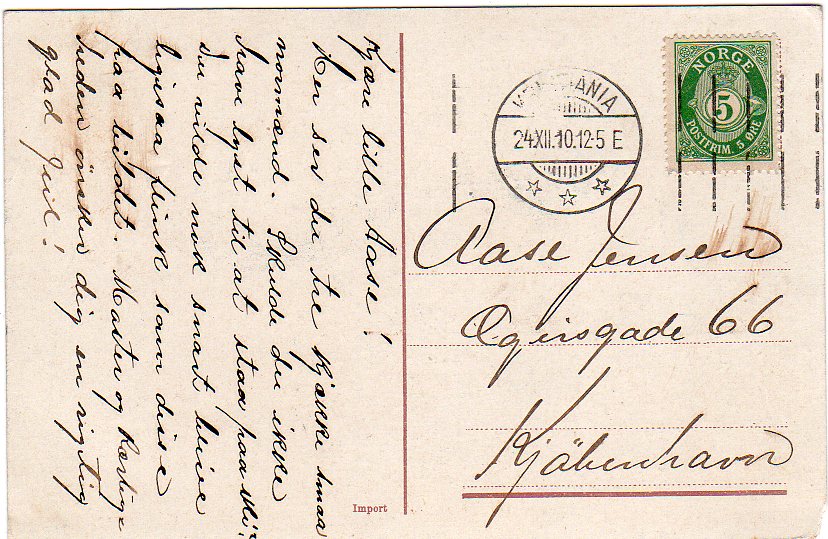 Kjære lille Aase!
Her ser du tre kjække smaa
normænd. Skulde du ikke
have lyst til at staa paa ski?
Du vilde nok snart blive
ligesaa flink som disse
paa billedet. Moster og
ønsker dig en rigtig
glad Jul!
KRISTIANIA
24XII.10.12-5 E
NORGE
5
POSTFRIM. 5 ØRE
Aase Jensen
Ægirsgade 66
Kjöbenhavn
Import